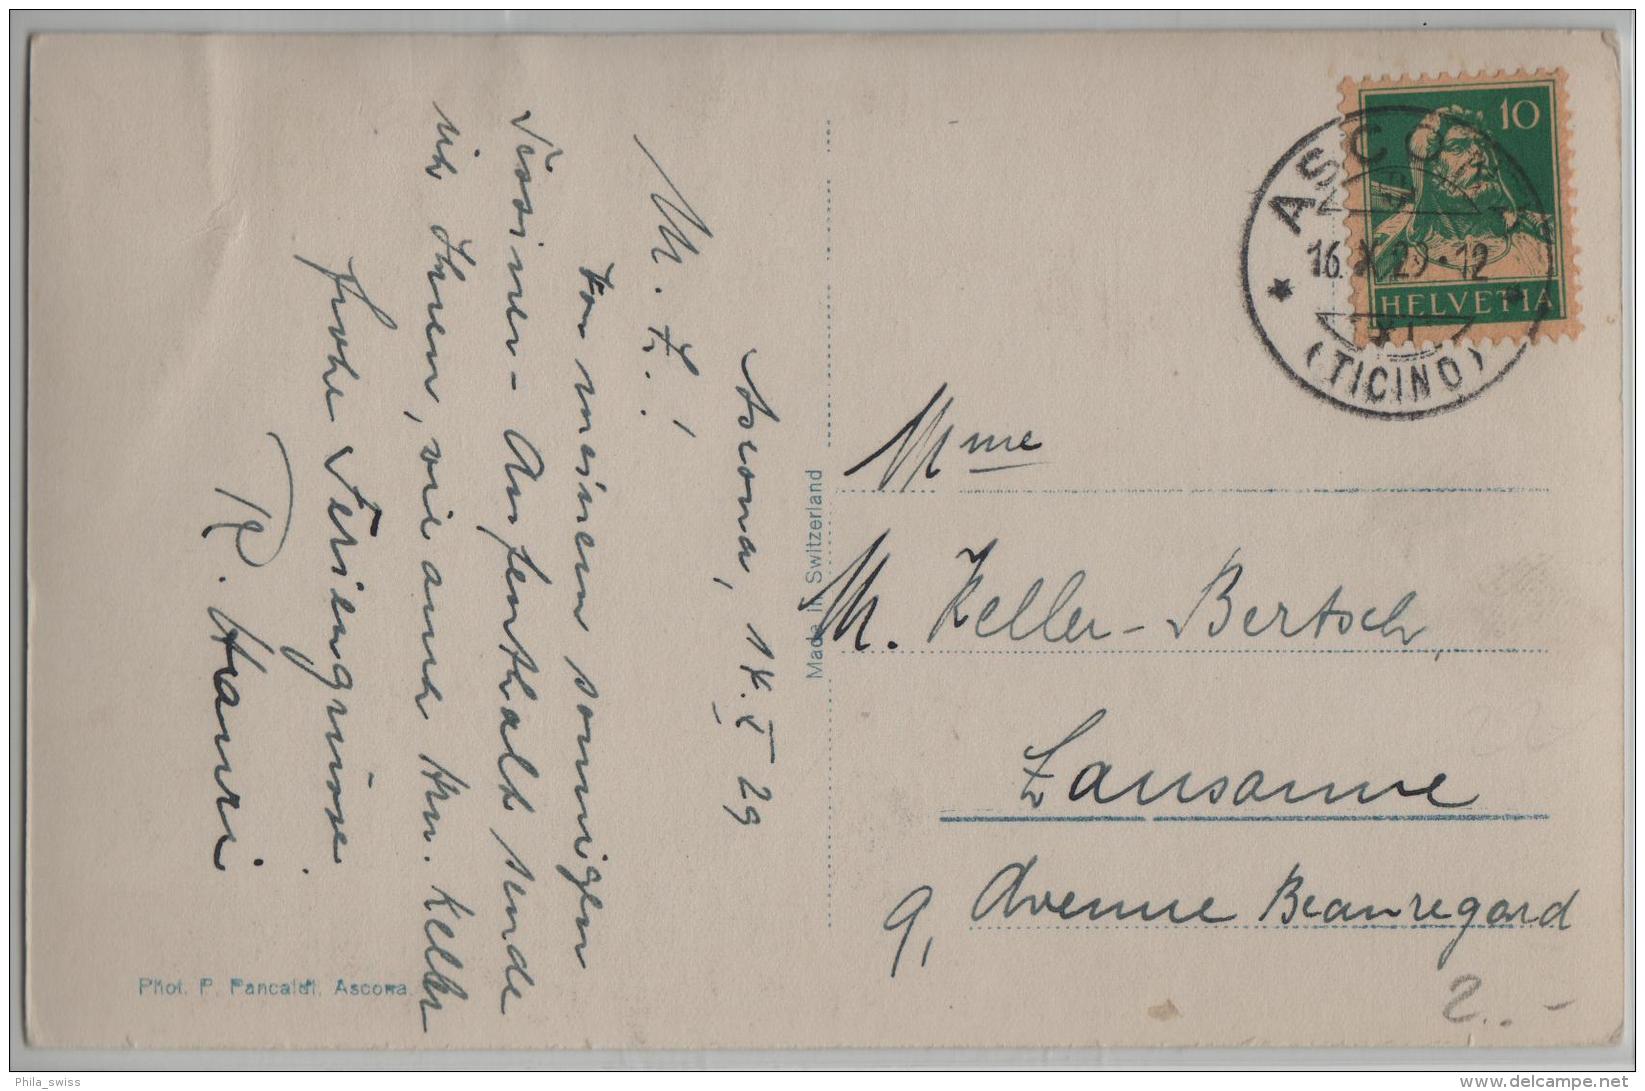 Ascona, 14. X 29
M. L.!
Von meinem sonnigen
Tessiner-Aufenthalt sende
ich Ihnen, wie auch Hrn. Keller
frohe Feriengrüsse.
R. Hauri
Phot. P. Pancaldi, Ascona.
Made in Switzerland
10
HELVETIA
ASCONA
16. X. 29 · 12
(TICINO)
Mme
M. Keller-Bertsch,
Lausanne
9, Avenue Beauregard
2.-
Phila_swiss
www.delcampe.net